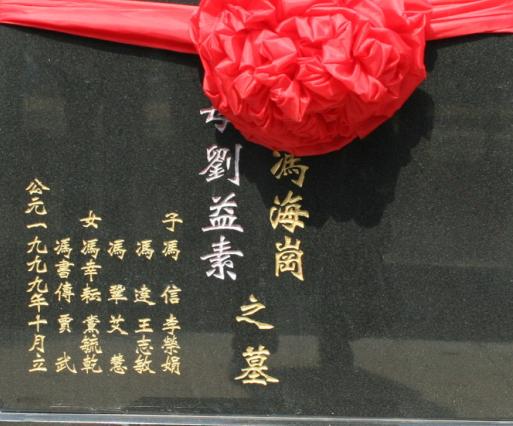 馮海崗
母劉益素
之墓
子 馮信 李榮娟
馮逵 王志敏
馮鞏 艾慧
女 馮幸耘 黨毓乾
馮書傳 賈武
公元一九九九年十月立